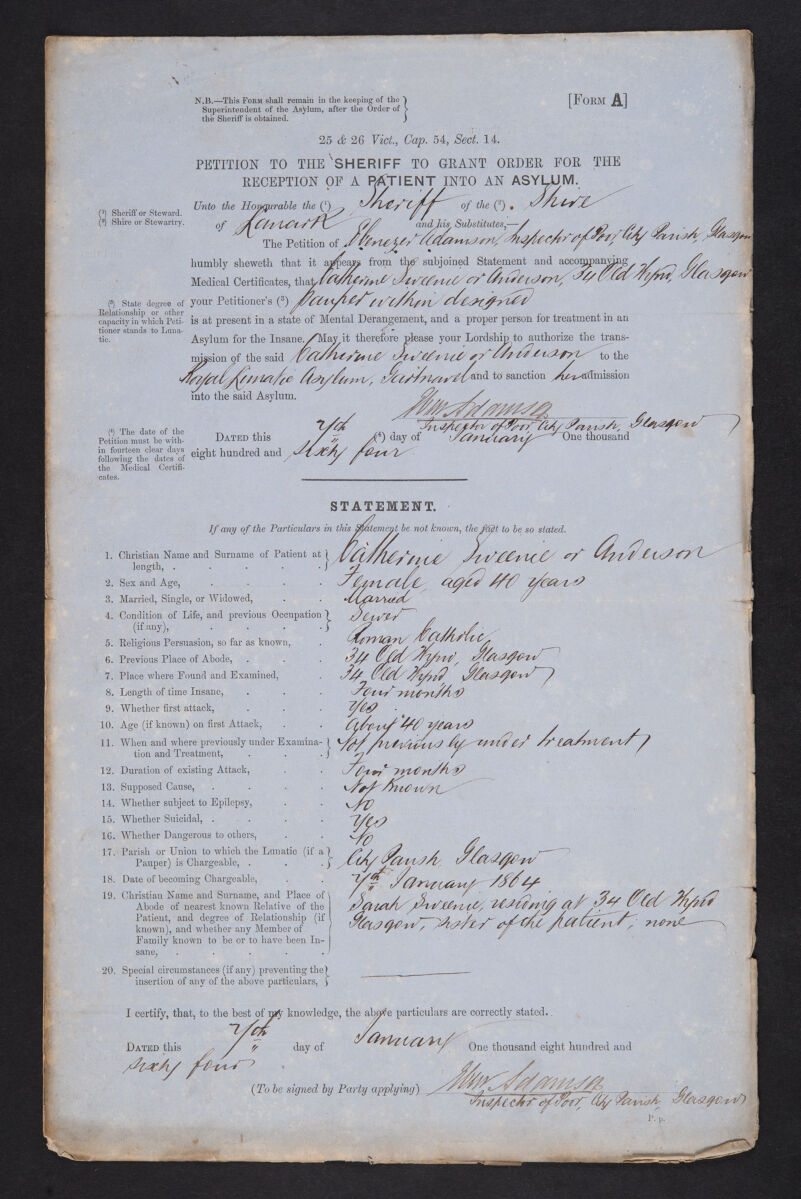 N.B.—This Form shall remain in the keeping of the
Superintendent of the Asylum, after the Order of
the Sheriff is obtained.
[Form A]
25 & 26 Vict., Cap. 54, Sect. 14.
PETITION TO THE SHERIFF TO GRANT ORDER FOR THE
RECEPTION OF A PATIENT INTO AN ASYLUM.
(¹) Sheriff or Steward.
(²) Shire or Stewartry.
Unto the Honourable the (¹) Sheriff of the (²) . Shire
of Lanark and his Substitutes,—
The Petition of Ebenezer Adamson, Inspector of Poor, City Parish, Glasgow
humbly sheweth that it appears from the subjoined Statement and accompanying
Medical Certificates, that Catherine Sweenie or Anderson, 34 Old Wynd, Glasgow
(³) State degree of
Relationship or other
capacity in which Peti-
tioner stands to Luna-
tic.
your Petitioner's (³) pauper within designed
is at present in a state of Mental Derangement, and a proper person for treatment in an
Asylum for the Insane. May it therefore please your Lordship to authorize the trans-
mission of the said Catherine Sweenie or Anderson to the
Royal Lunatic Asylum, Gartnavel and to sanction her admission
into the said Asylum.
Ebenr Adamson
Inspector of Poor, City Parish, Glasgow
(⁴) The date of the
Petition must be with-
in fourteen clear days
following the dates of
the Medical Certifi-
cates.
Dated this 7th (⁴) day of January One thousand
eight hundred and sixty four
STATEMENT.
If any of the Particulars in this Statement be not known, the fact to be so stated.
1. Christian Name and Surname of Patient at
length, . Catherine Sweenie or Anderson
2. Sex and Age, Female, aged 40 years
3. Married, Single, or Widowed, Married
4. Condition of Life, and previous Occupation
(if any), Sewer
5. Religious Persuasion, so far as known, Roman Catholic
6. Previous Place of Abode, 34 Old Wynd, Glasgow
7. Place where Found and Examined, 34 Old Wynd, Glasgow
8. Length of time Insane, Four months
9. Whether first attack, Yes
10. Age (if known) on first Attack, About 40 years
11. When and where previously under Examina-
tion and Treatment, Not previously under treatment
12. Duration of existing Attack, Four months
13. Supposed Cause, Not known
14. Whether subject to Epilepsy, No
15. Whether Suicidal, Yes
16. Whether Dangerous to others, No
17. Parish or Union to which the Lunatic (if a
Pauper) is Chargeable, City Parish Glasgow
18. Date of becoming Chargeable, 7th January 1864
19. Christian Name and Surname, and Place of
Abode of nearest known Relative of the
Patient, and degree of Relationship (if
known), and whether any Member of
Family known to be or to have been In-
sane,
Sarah Sweenie, residing at 34 Old Wynd
Glasgow, sister of the patient, none
20. Special circumstances (if any) preventing the
insertion of any of the above particulars,
I certify, that, to the best of my knowledge, the above particulars are correctly stated.
Dated this 7th day of January One thousand eight hundred and
sixty four
(To be signed by Party applying) Ebenr Adamson
Inspector of Poor, City Parish, Glasgow
P. p.